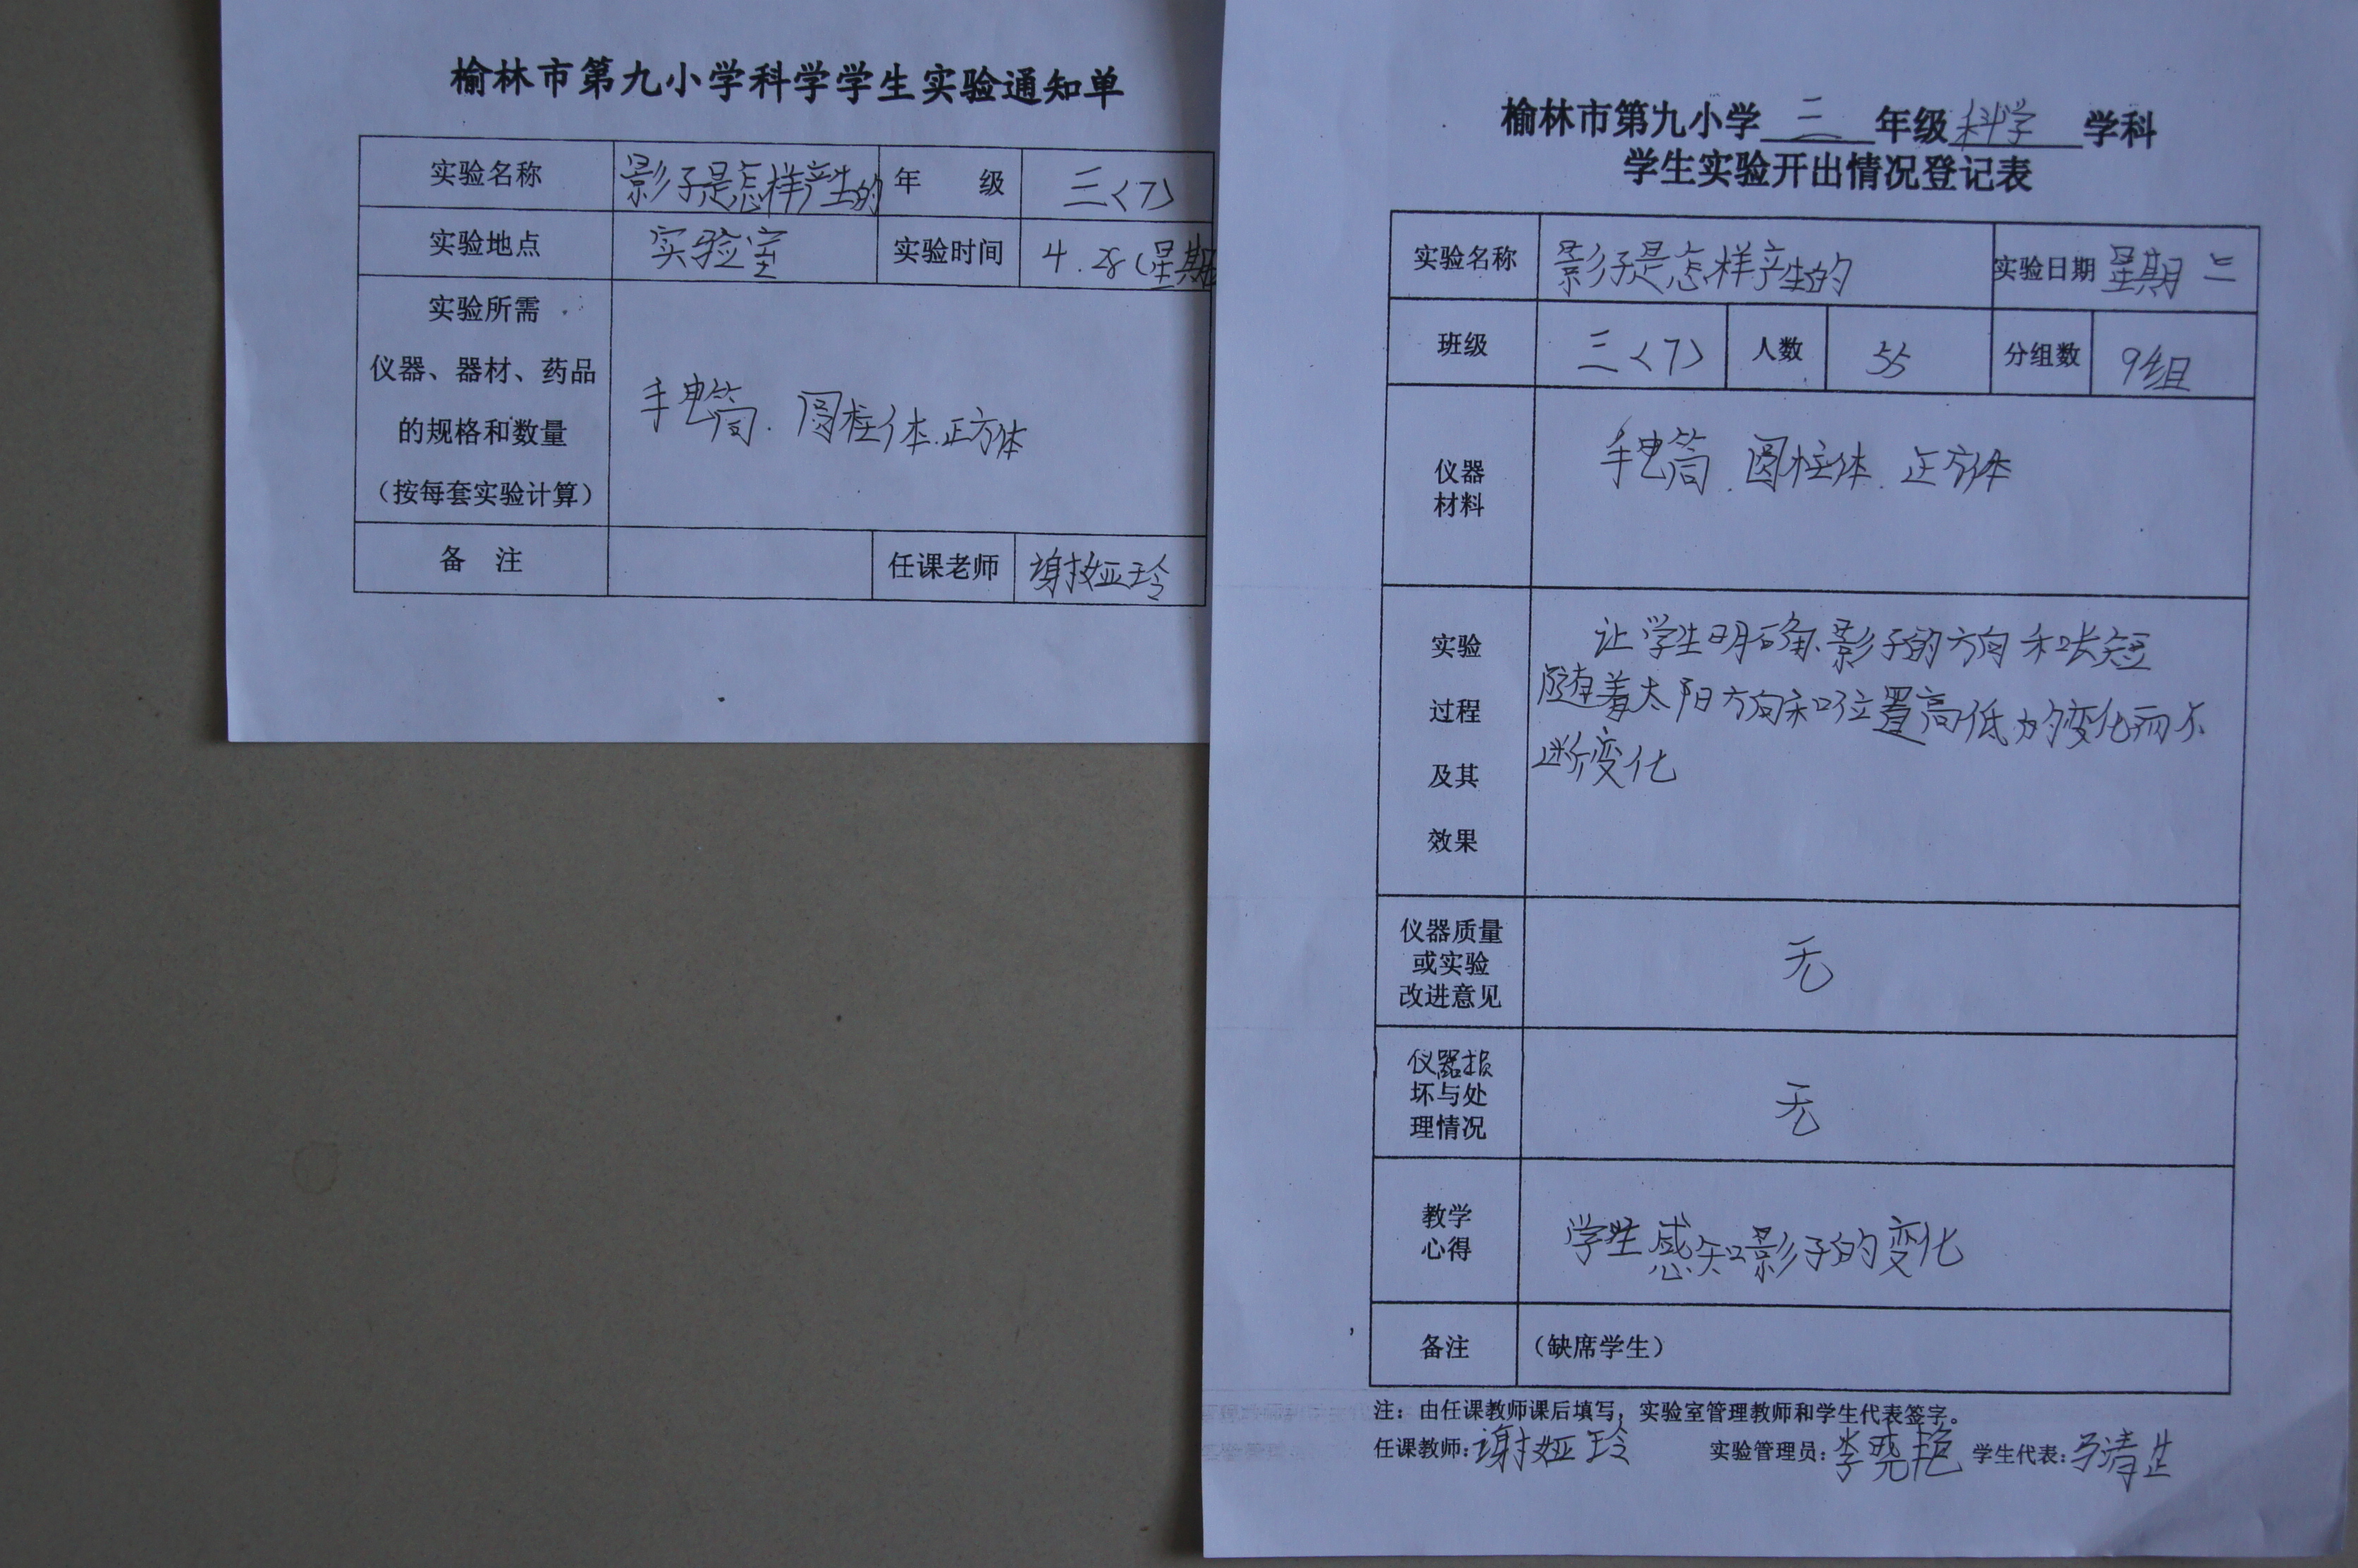 榆林市第九小学科学学生实验通知单
实验名称 影子是怎样产生的 年 级 三〈7〉
实验地点 实验室 实验时间 4.28(星期
实验所需
仪器、器材、药品
的规格和数量
（按每套实验计算）
手电筒. 圆柱体.正方体
备 注 任课老师 谢娅玲
榆林市第九小学 三 年级 科学 学科
学生实验开出情况登记表
实验名称 影子是怎样产生的 实验日期 星期二
班级 三〈7〉 人数 55 分组数 9组
仪器
材料
手电筒. 圆柱体. 正方体
实验
过程
及其
效果
让学生明确影子的方向和长短
随着太阳方向和位置高低的变化而不
断变化
仪器质量
或实验
改进意见
无
仪器损
坏与处
理情况
无
教学
心得
学生感知影子的变化
备注 （缺席学生）
注：由任课教师课后填写，实验室管理教师和学生代表签字。
任课教师:谢娅玲 实验管理员:李晓艳 学生代表: